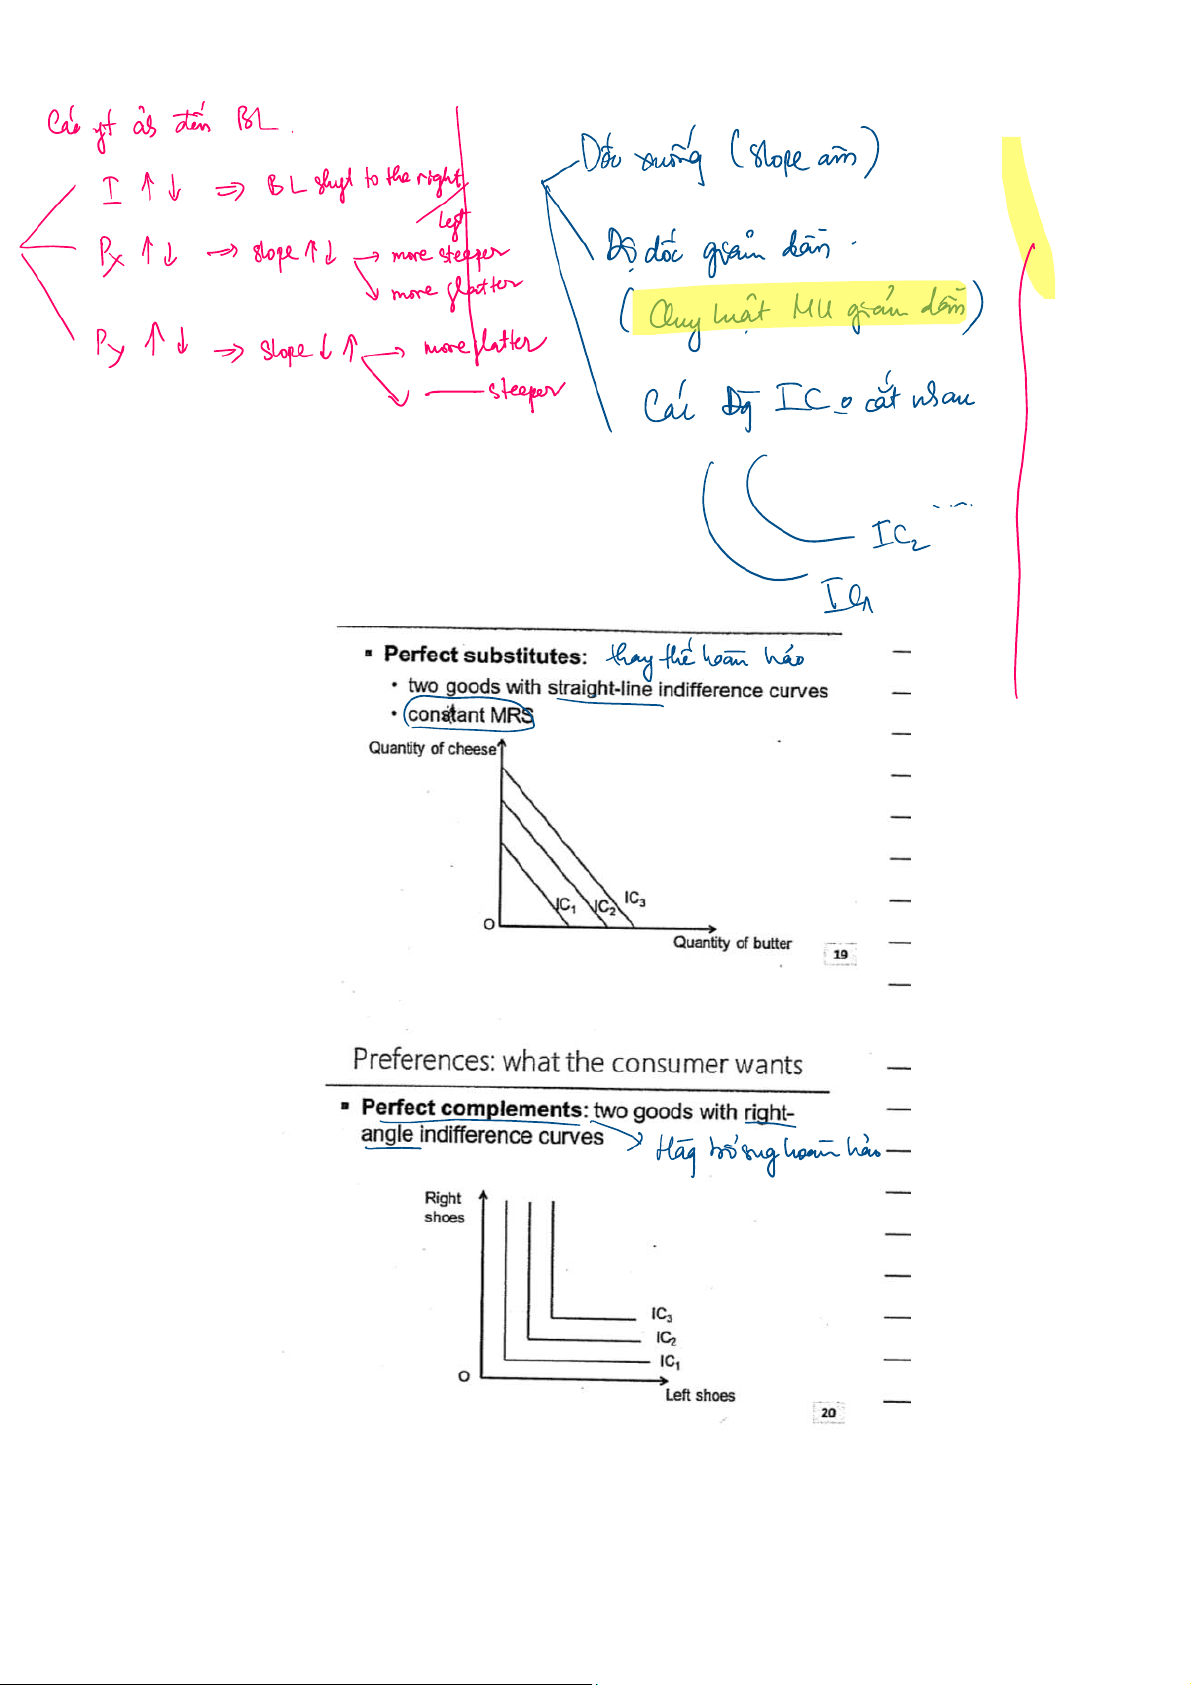 Các yt ảs đến BL.
I ↑ ↓ => BL shift to the right
/ left
Px ↑ ↓ => slope ↑ ↓ → more steeper
↘ more flatter
Py ↑ ↓ => slope ↓ ↑ → more flatter
↘ — steeper
Dốc xuống (slope âm)
Độ dốc giảm dần.
(Quy luật MU giảm dần)
Các IC cắt nhau
IC2
IC1
▪ Perfect substitutes: thay thế hoàn hảo
• two goods with straight-line indifference curves
• constant MRS
Quantity of cheese
IC1 IC2 IC3
O
Quantity of butter
19
Preferences: what the consumer wants
▪ Perfect complements: two goods with right-
angle indifference curves → Hàg bổ sung hoàn hảo
Right
shoes
IC3
IC2
IC1
O
Left shoes
20